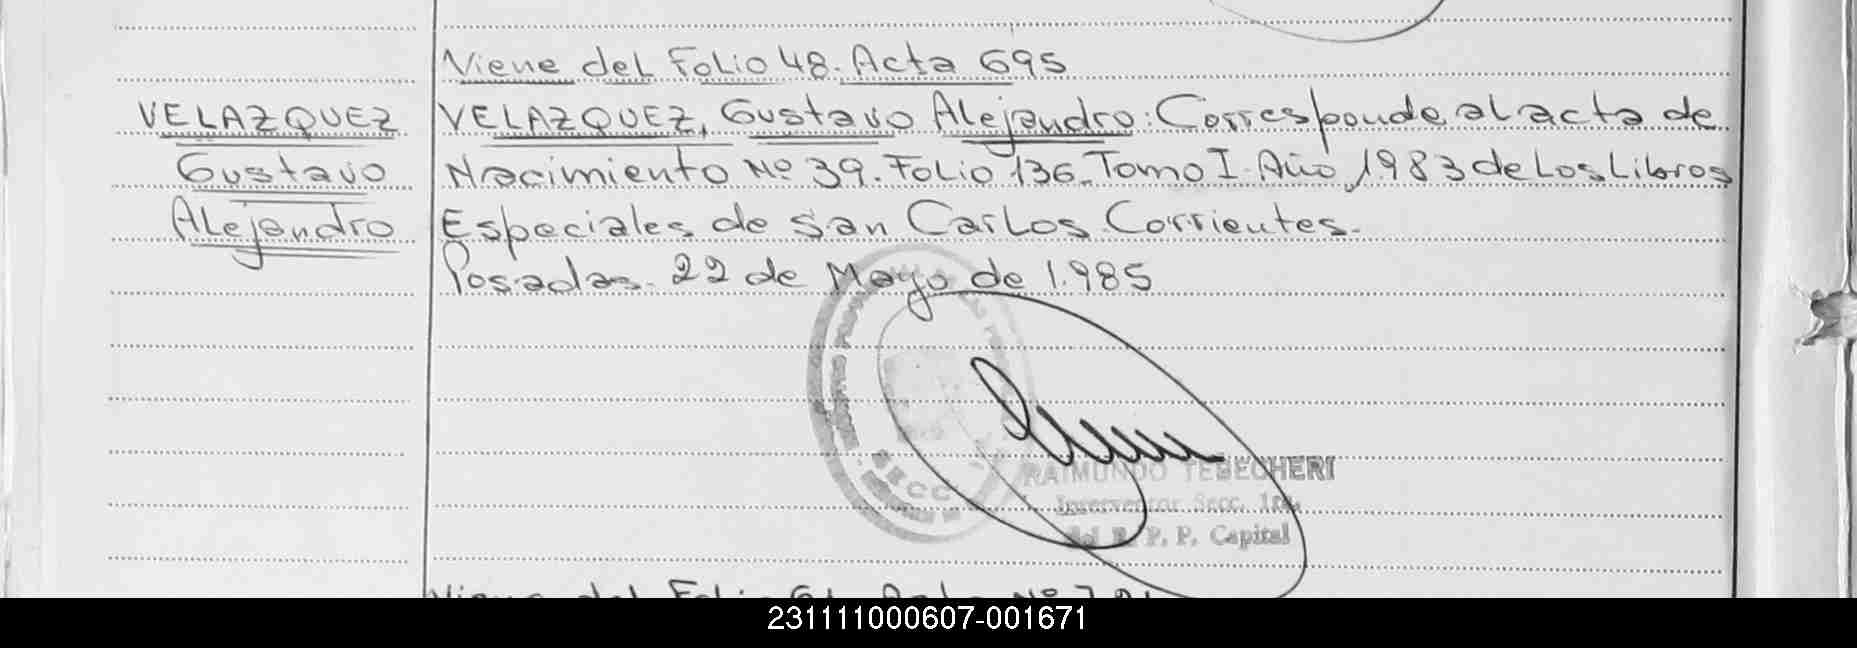 Viene del Folio 48. Acta 695
VELAZQUEZ
Gustavo
Alejandro
VELAZQUEZ, Gustavo Alejandro: Corresponde al acta de
Nacimiento Nº 39. Folio 136. Tomo I. Año 1983 de Los Libros
Especiales de San Carlos Corrientes.
Posadas. 22 de Mayo de 1.985
RAIMUNDO TEBECHERI
Interventor Secc. 1ra.
del R. P. P. Capital
SECC
231111000607-001671